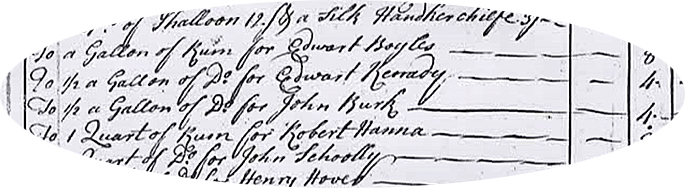 of Shalloon 12./ & a Silk Handkerchiefe 5/
To a Gallon of Rum for Edwart Boyles 8
To 1/2 a Gallon of Do. for Edwart Kenady 4.
To 1/2 a Gallon of Do. for John Burk 4.
To 1 Quart of Rum for Robert Hanna
Quart of Do. for John Schoolly
of Do. for Henry Hover